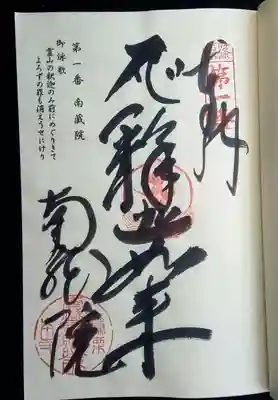 奉拝
第一番
釋迦如来
南蔵院
第一番 南蔵院
御詠歌
霊山の釈迦のみ前にめぐりきて
よろずの罪も消えうせにけり